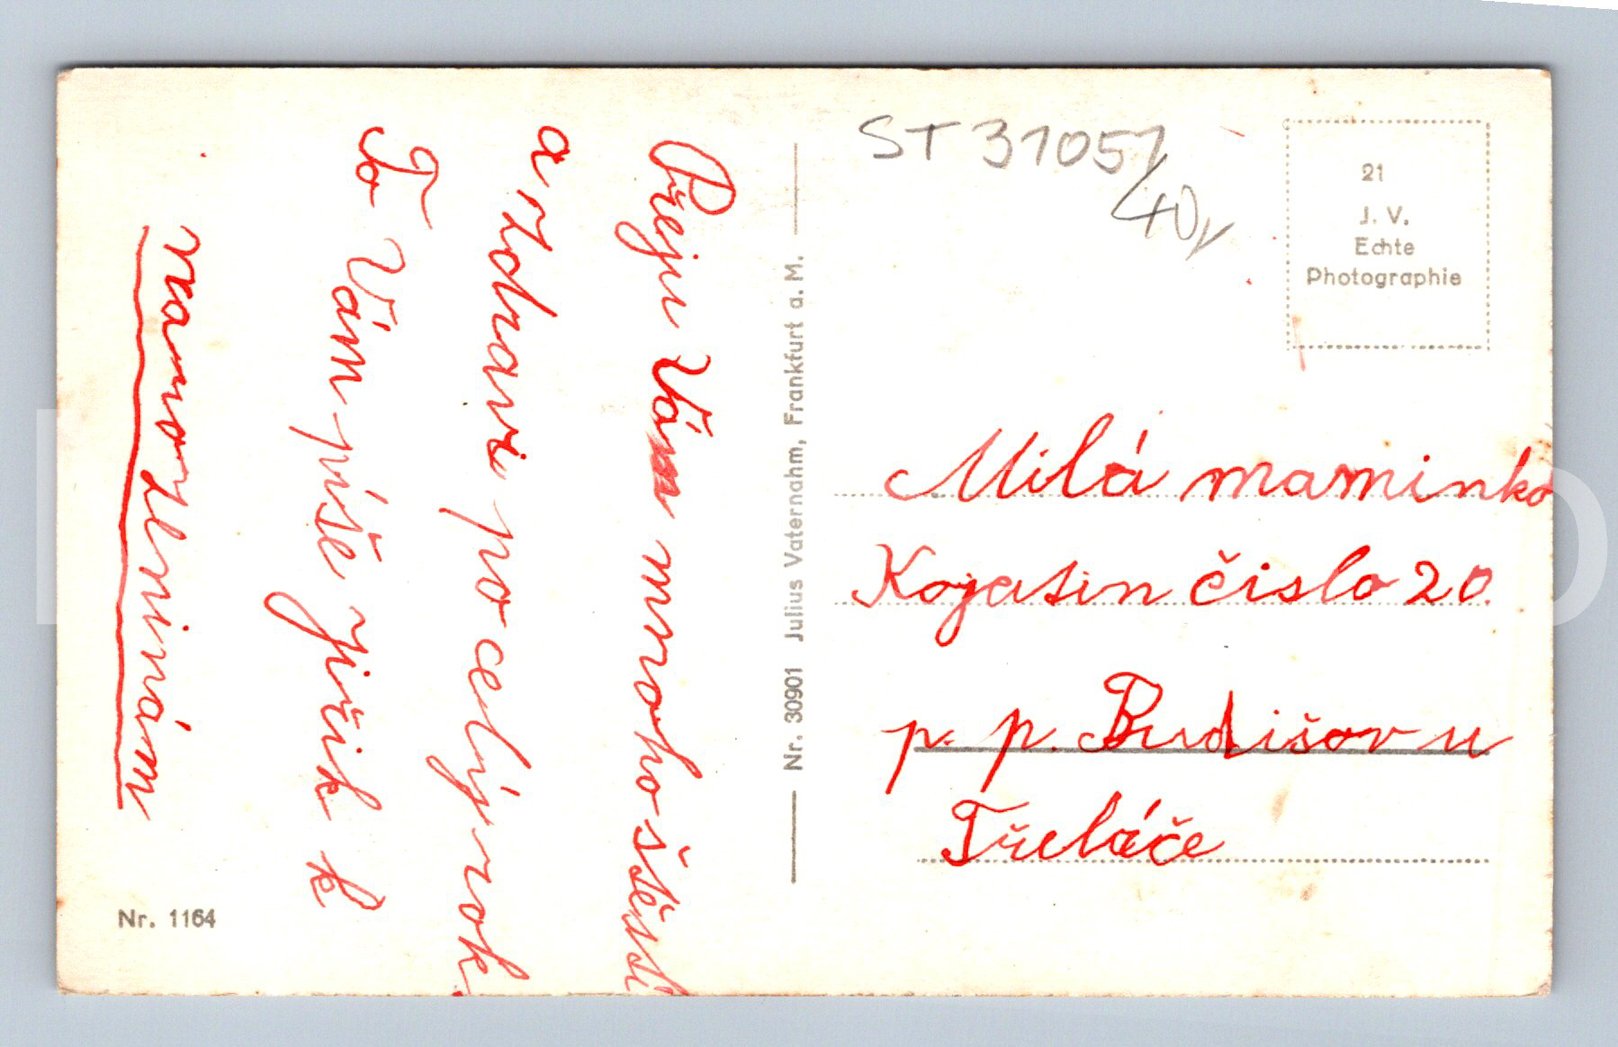 Přeju Vám mnoho štěstí
a Zdraví po celý rok
To Vám píše Jiřik k
Nr. 1164
Nr. 30901 Julius Vaternahm, Frankfurt a. M.
ST 31051
/40,
21
J. V.
Echte
Photographie
Milá maminko
Kojatin čislo 20
p. p. Budišov u
Třebáče